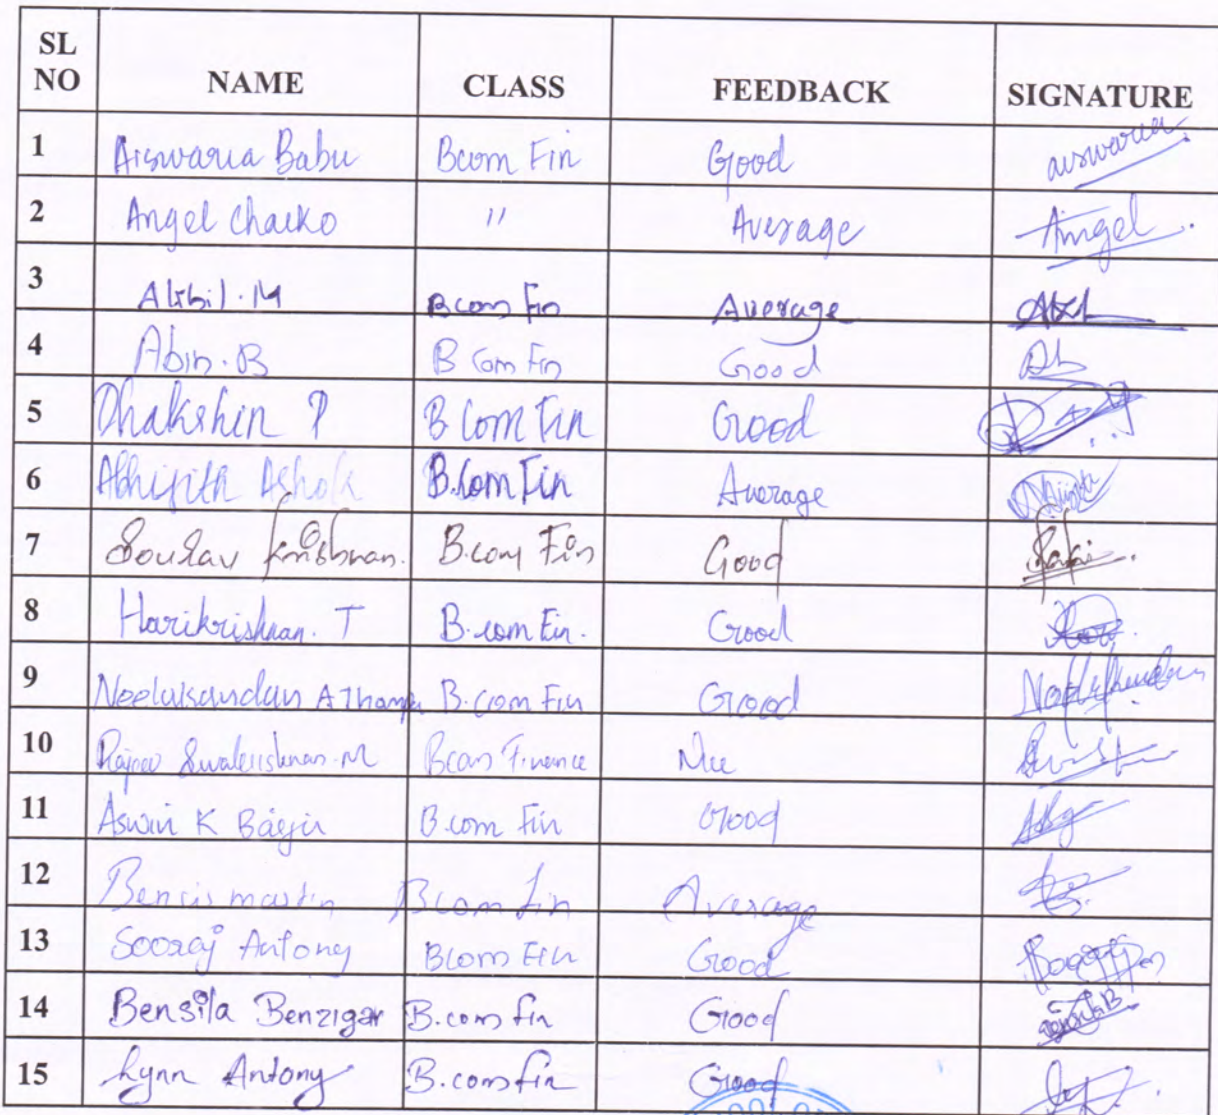 SL NO NAME CLASS FEEDBACK SIGNATURE
1 Aiswaria Babu Bcom Fin Good aiswaria
2 Angel Chacko " Average Angel.
3 Akhil. M B com Fin Average
4 Abin. B B Com Fin Good Ab
5 Dhakshin P B Com Fin Good
6 Abhijith Ashok B.Com Fin Average
7 Sourav Krishnan. B.com Fin Good
8 Harikrishnan. T B.com Fin. Good
9 Neelakandan A Thampi B.com Fin Good Neelakandan
10 M Bcom Finance
11 Aswin K B.com Fin Good
12 Bensis martin Bcom fin Average
13 Sooraj Antony Bcom Fin Good
14 Bensila Benzigar B.com fin Good
15 Lynn Antony B.com fin Good